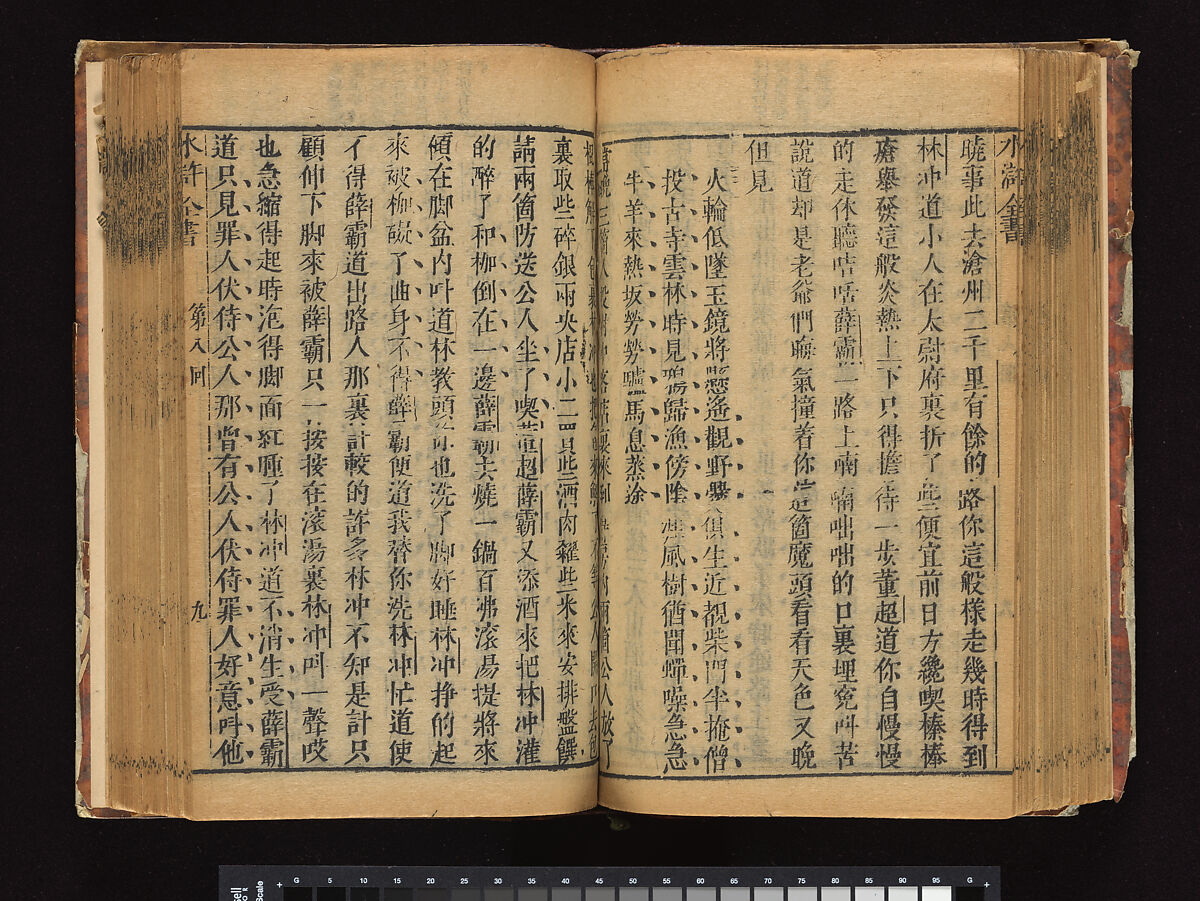 水滸全書
曉事此去滄州二千里有餘的路你這般樣走幾時得到
林冲道小人在太尉府裏折了些便宜前日方纔喫棒棒
瘡舉發這般炎熱上下只得擔待一步董超道你自慢慢
的走休聽咭咶薛霸一路上喃喃咄咄的口裏埋冤叫苦
說道却是老爺們晦氣撞着你這箇魔頭看看天色又晚
但見
火輪低墜玉鏡將懸遙觀野㸑俱生近覩柴門半掩僧
投古寺雲林時見鴉歸漁傍陰涯風樹猶聞蟬噪急急
牛羊來熱坂勞勞驢馬息蒸途
當晚三箇人投村中客店裏來到房內兩箇公人放了
裏取些碎銀兩央店小二買些酒肉糴些米來安排盤饌
請兩箇防送公人坐了喫董超薛霸又添酒來把林冲灌
的醉了和枷倒在一邊薛霸去燒一鍋百沸滾湯提將來
傾在脚盆內叫道林教頭你也洗了脚好睡林冲挣的起
來被枷礙了曲身不得薛霸便道我替你洗林冲忙道使
不得薛霸道出路人那裏計較的許多林冲不知是計只
顧伸下脚來被薛霸只一按按在滚湯裏林冲叫一聲哎
也急縮得起時泡得脚面紅腫了林冲道不消生受薛霸
道只見罪人伏侍公人那曾有公人伏侍罪人好意呌他
水滸全書
第八回
九